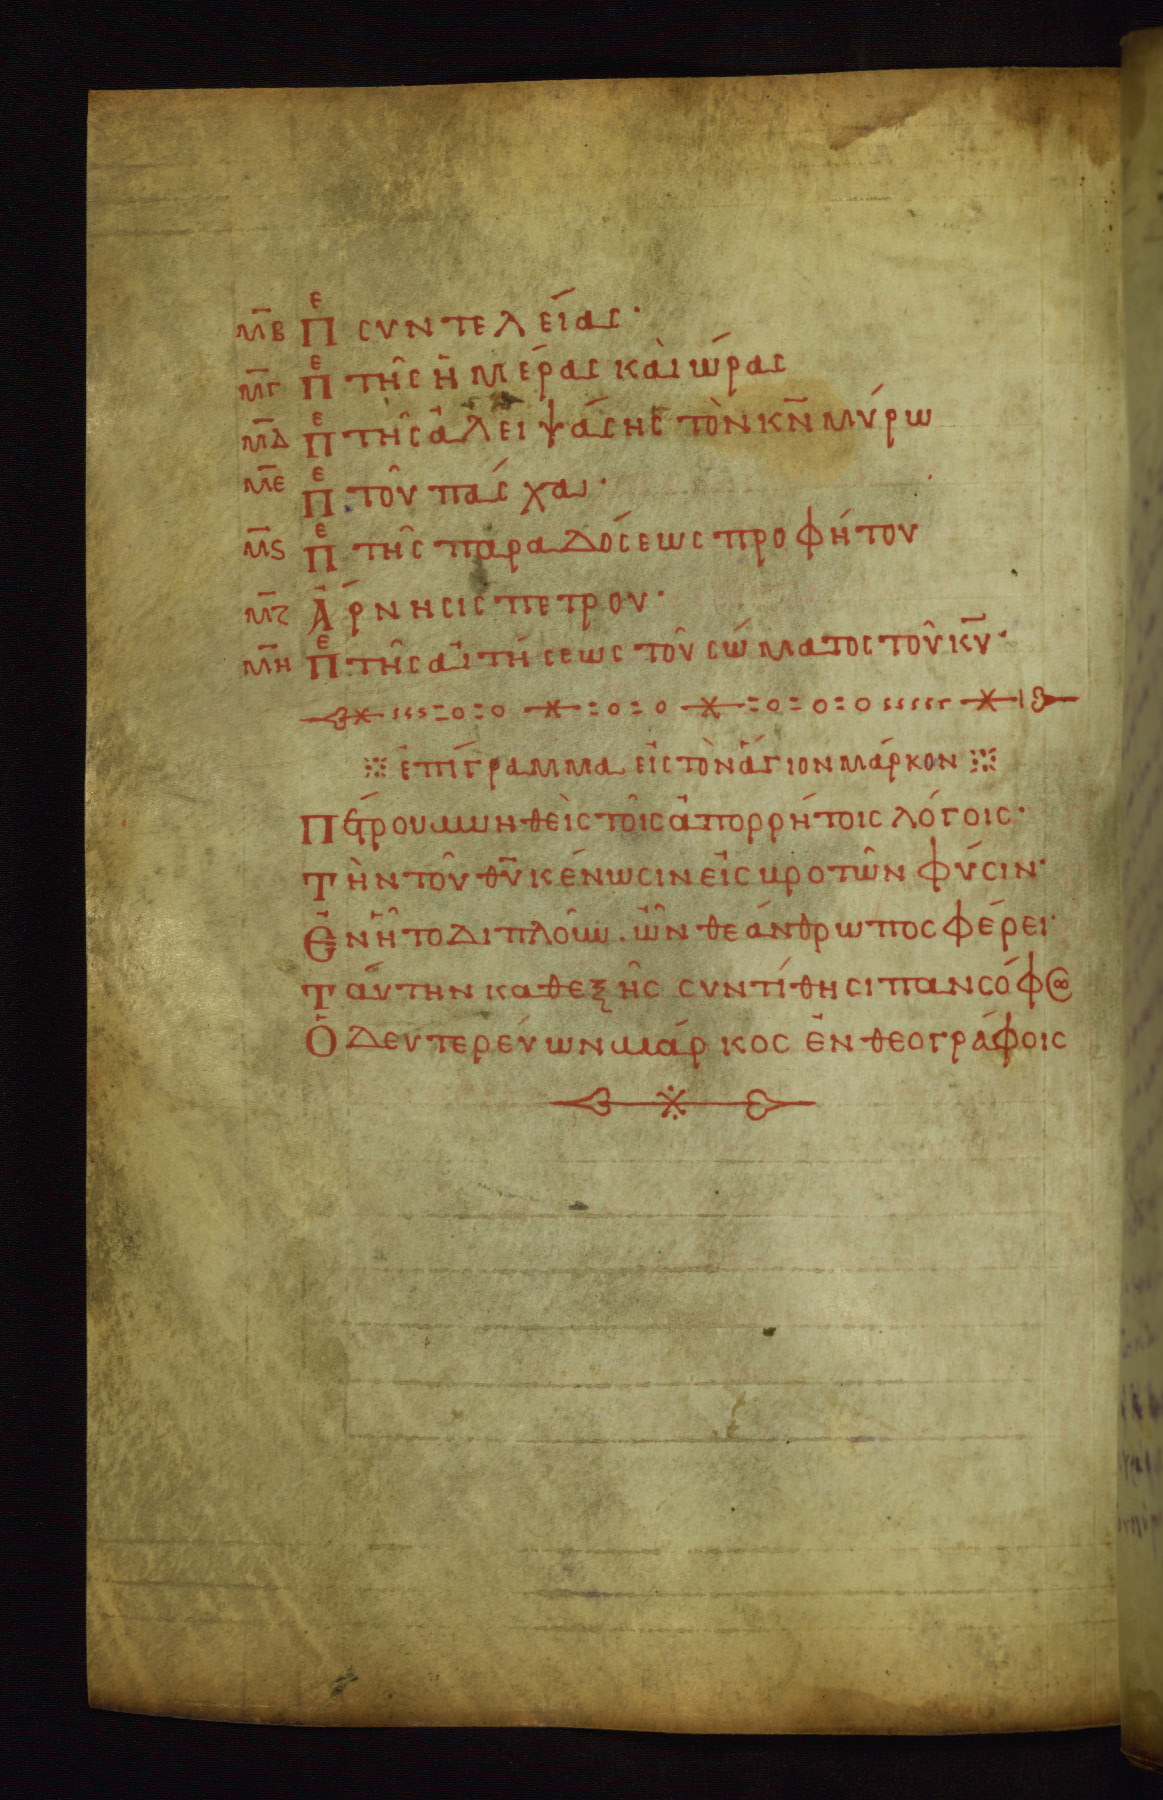 μβ πε συντελείας·
μγ πε τῆς ἡμέρας καὶ ὥρας
μδ πε τῆς ἀλειψάσης τὸν κν̅ μύρω
με πε τοῦ πάσχα·
μϛ πε τῆς παραδόσεως προφήτου
μζ Ἄρνησις πετρου·
μη πε τῆς αἰτήσεως τοῦ σώματος τοῦ κυ̅·
ἐπίγραμμα εἰς τὸν ἅγιον μάρκον
Πέτρου μυηθεὶς τοῖς ἀπορρήτοις λόγοις·
Τὴν τοῦ θυ̅ κένωσιν εἰς βροτῶν φύσιν·
Ἐν ᾗ τὸ διπλοῦν. ὢν θεάνθρωπος φέρει·
Ταύτην καθεξῆς συντίθησι πανσόφως
Ὁ δευτερεύων μάρκος ἐν θεογράφοις